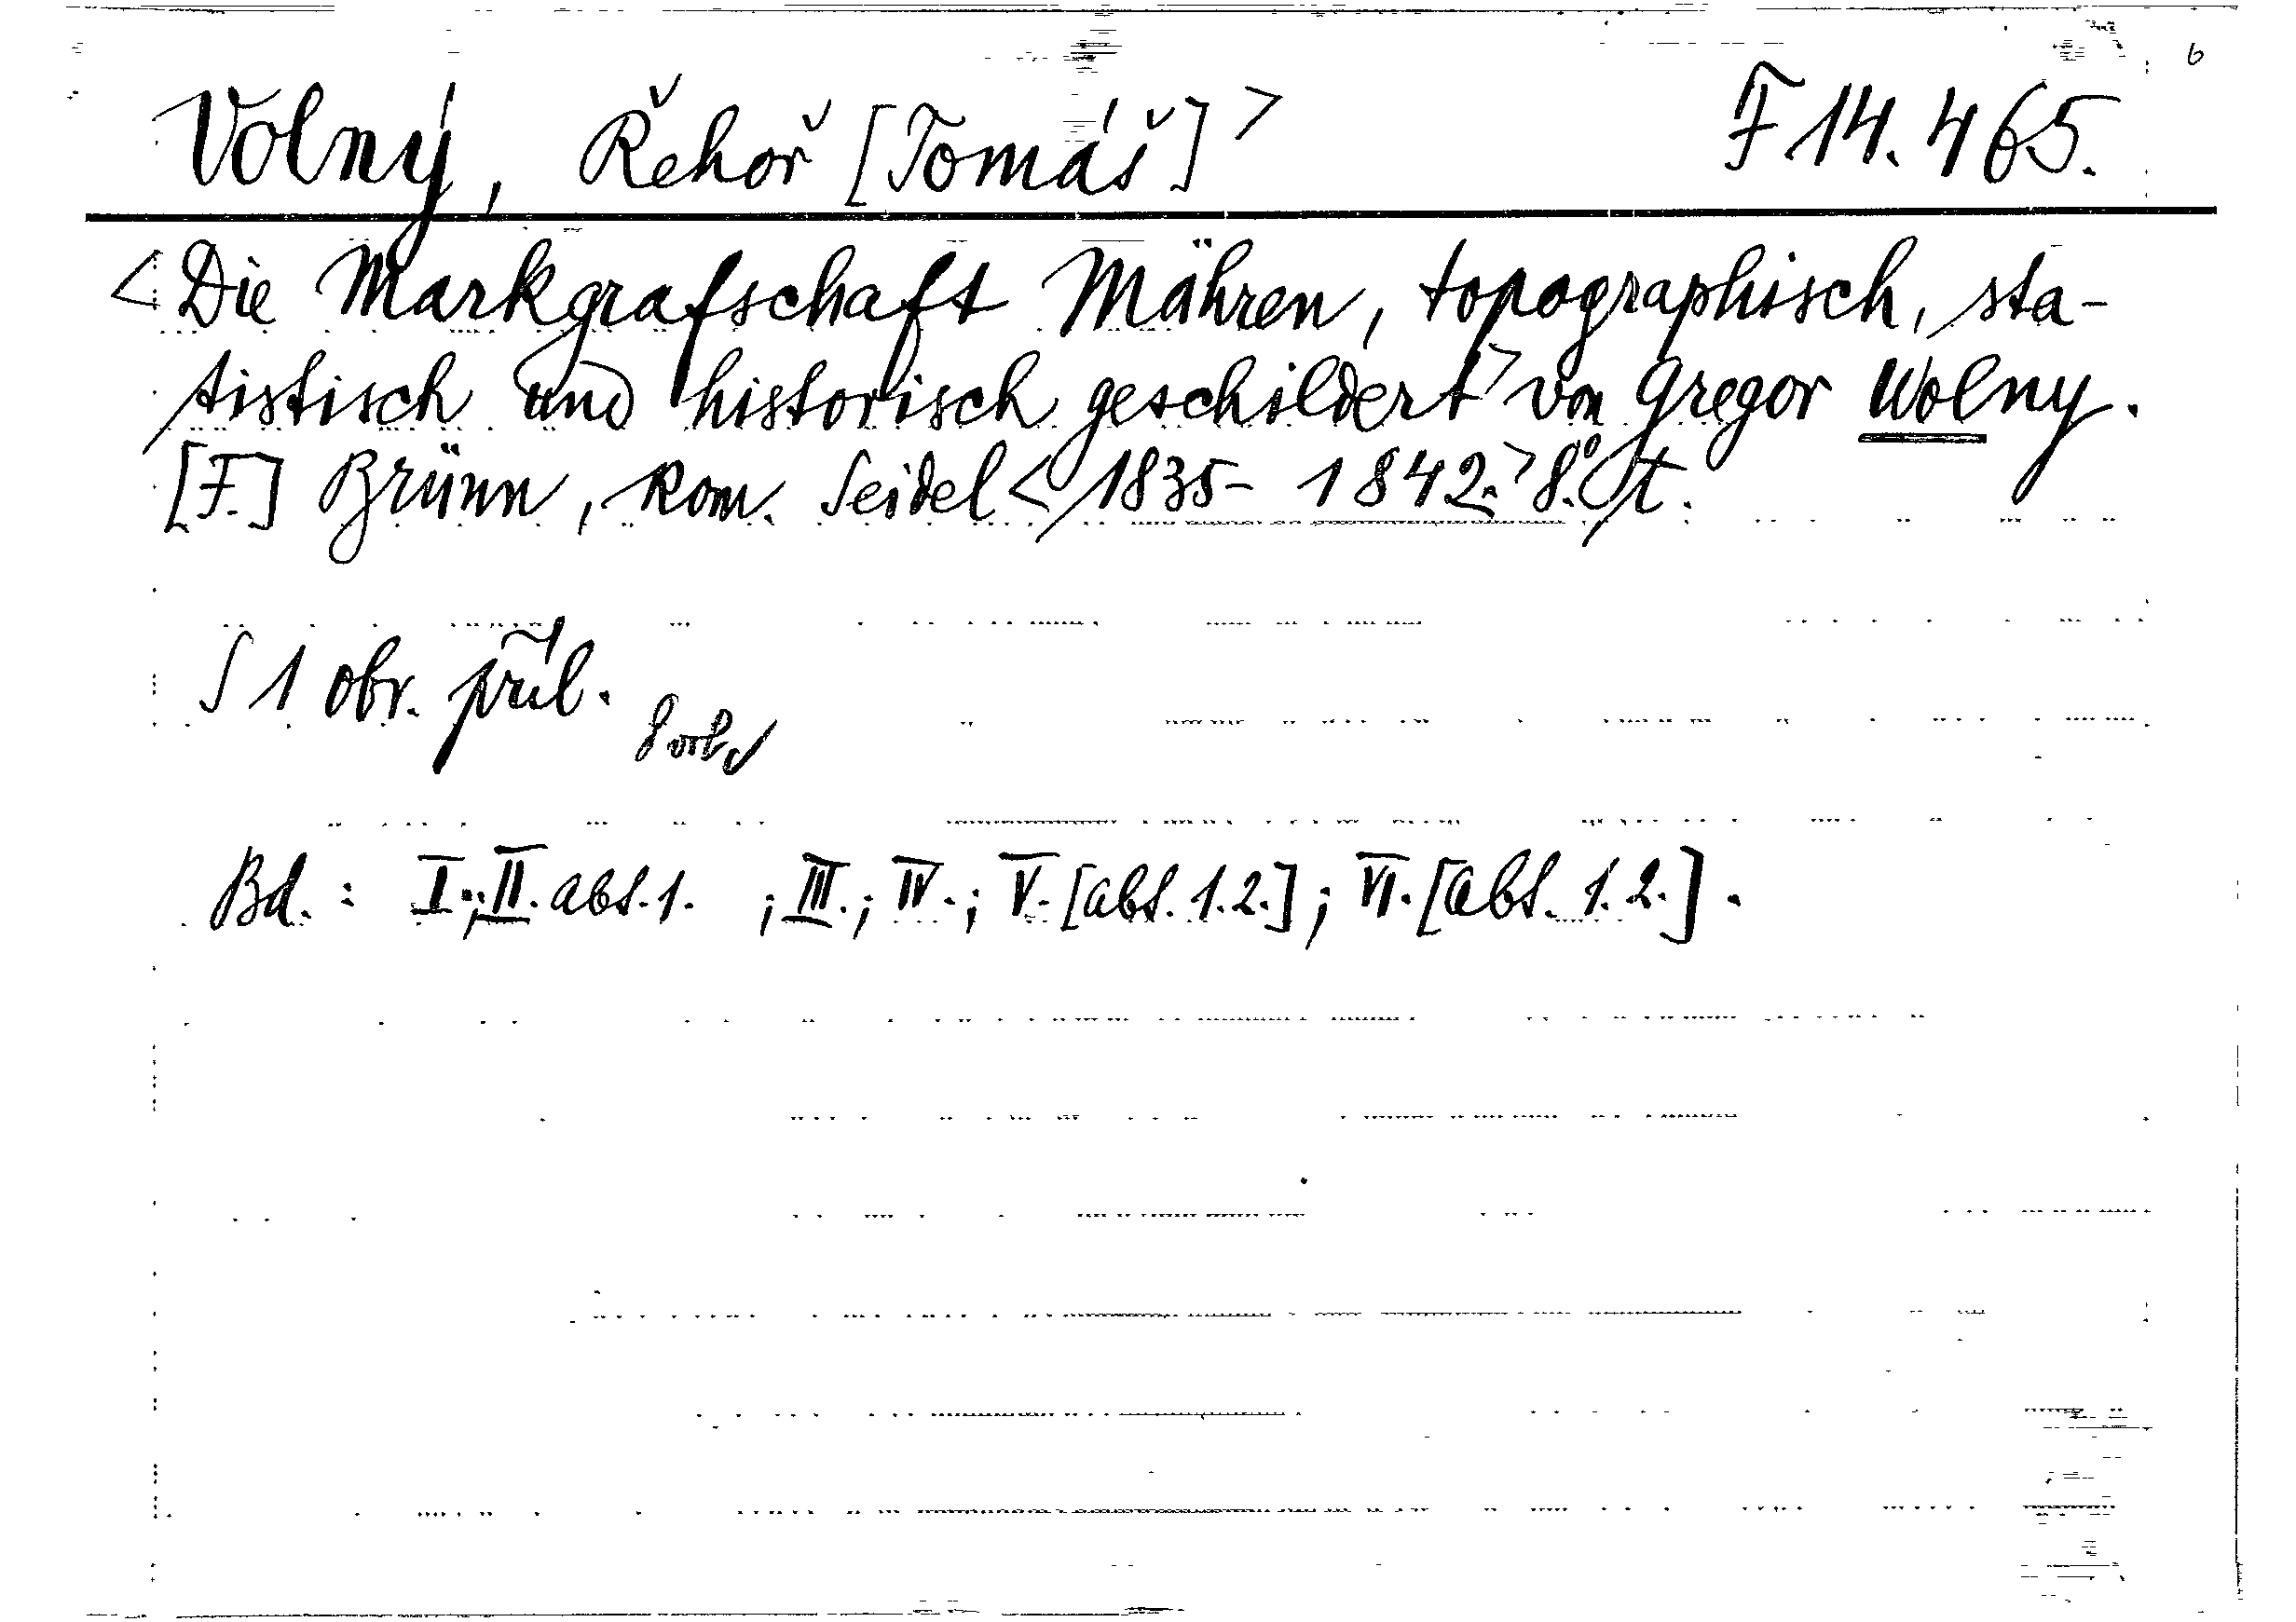 6
Volný, Řehoř [Tomáš] > F 14.465.
< Die Markgrafschaft Mähren, topographisch, sta-
tistisch und historisch geschildert > von Gregor Wolny.
[F.] Brünn, Rom. Seidel < 1835 - 1842. > 8.° t.
S 1 obr. příl.
Bd. : I.; II. abt. 1. ; III.; IV.; V. [abt. 1.2.]; VI. [abt. 1.2.].